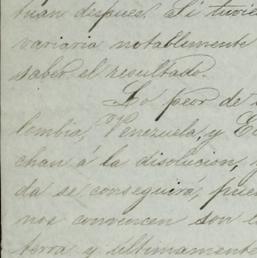 tuan despues. Si tuvie
variaria notablemente
saber el resultado.
Lo peor de
lombia, Venezuela, y Ec
chan á la disolucion, y
da se conseguirá, pues
nos convencen son
terra y ultimamente